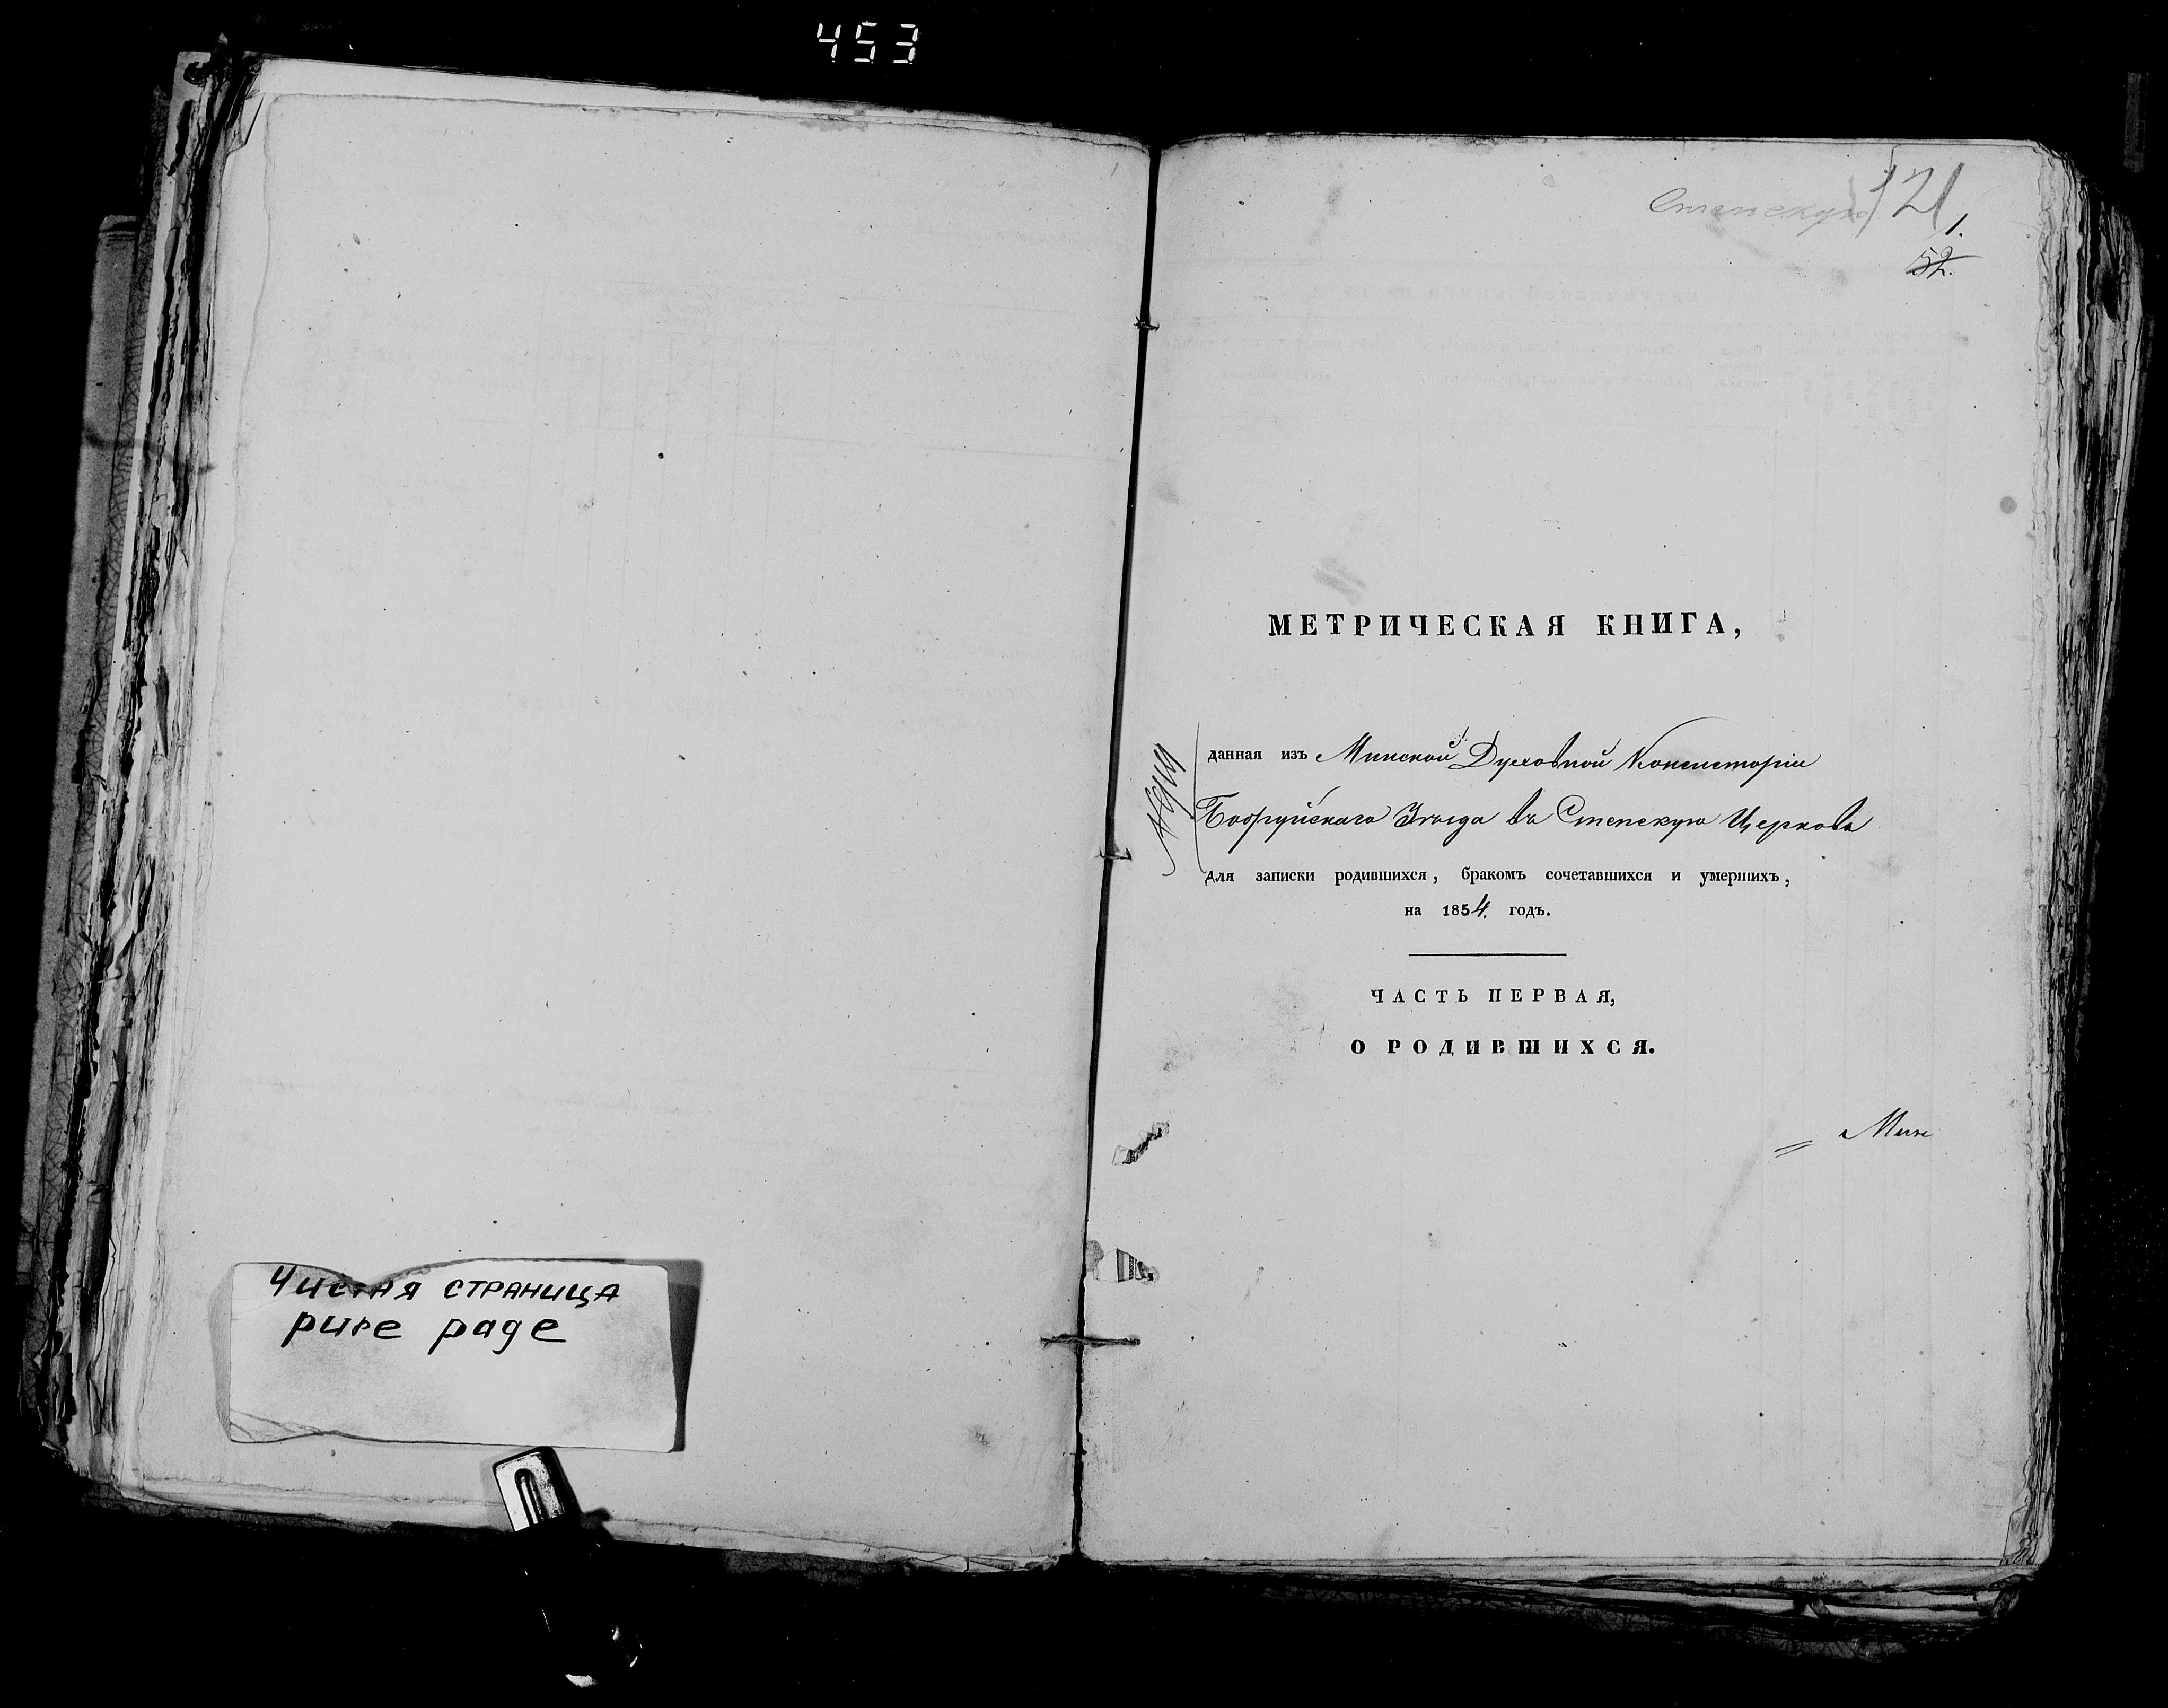 453
Чистая страница
pure page
Степскую 121
1.
52.
МЕТРИЧЕСКАЯ КНИГА,
данная изъ Минской Духовной Консисторіи
Бобруйскаго Уѣзда въ Степскую Церковь
для записки родившихся, бракомъ сочетавшихся и умершихъ,
на 1854. годъ.
ЧАСТЬ ПЕРВАЯ,
О РОДИВШИХСЯ.